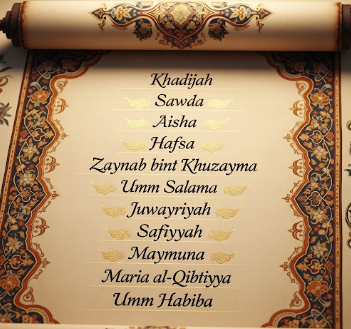 Khadijah
Sawda
Aisha
Hafsa
Zaynab bint Khuzayma
Umm Salama
Juwayriyah
Safiyyah
Maymuna
Maria al-Qibtiyya
Umm Habiba